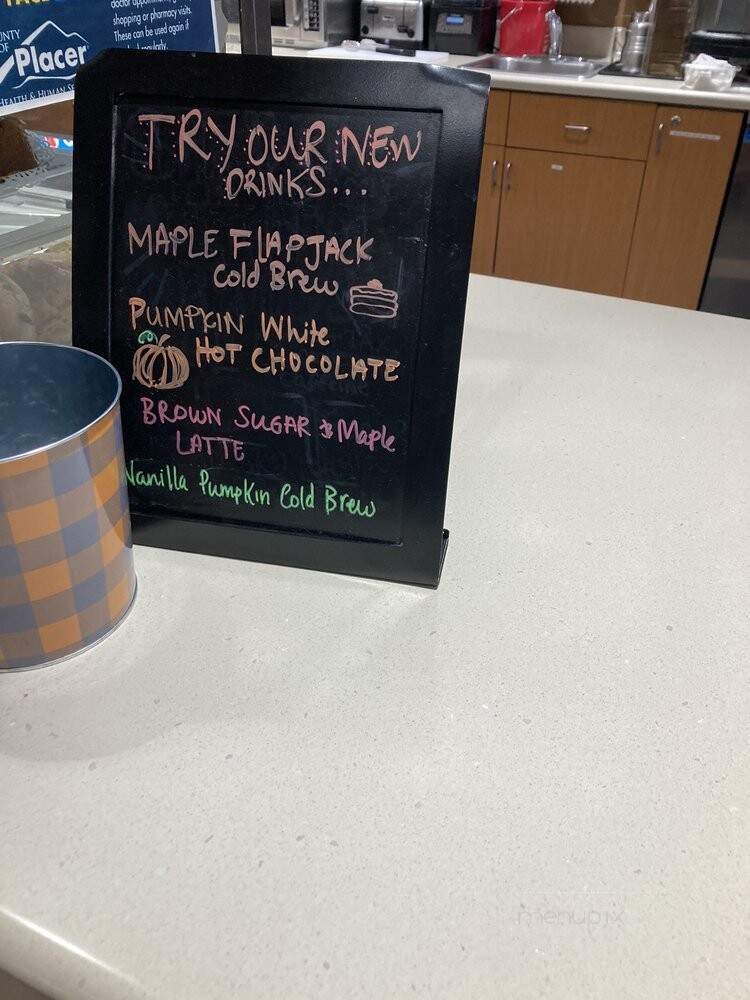 doctor
shopping or pharmacy visits.
These can be used again if
regularly.
Placer
HEALTH & HUMAN
TRY OUR NEW
DRINKS...
MAPLE FLAPJACK
Cold Brew
PUMPKIN White
HOT CHOCOLATE
BROWN SUGAR & Maple
LATTE
Vanilla Pumpkin Cold Brew
menupix